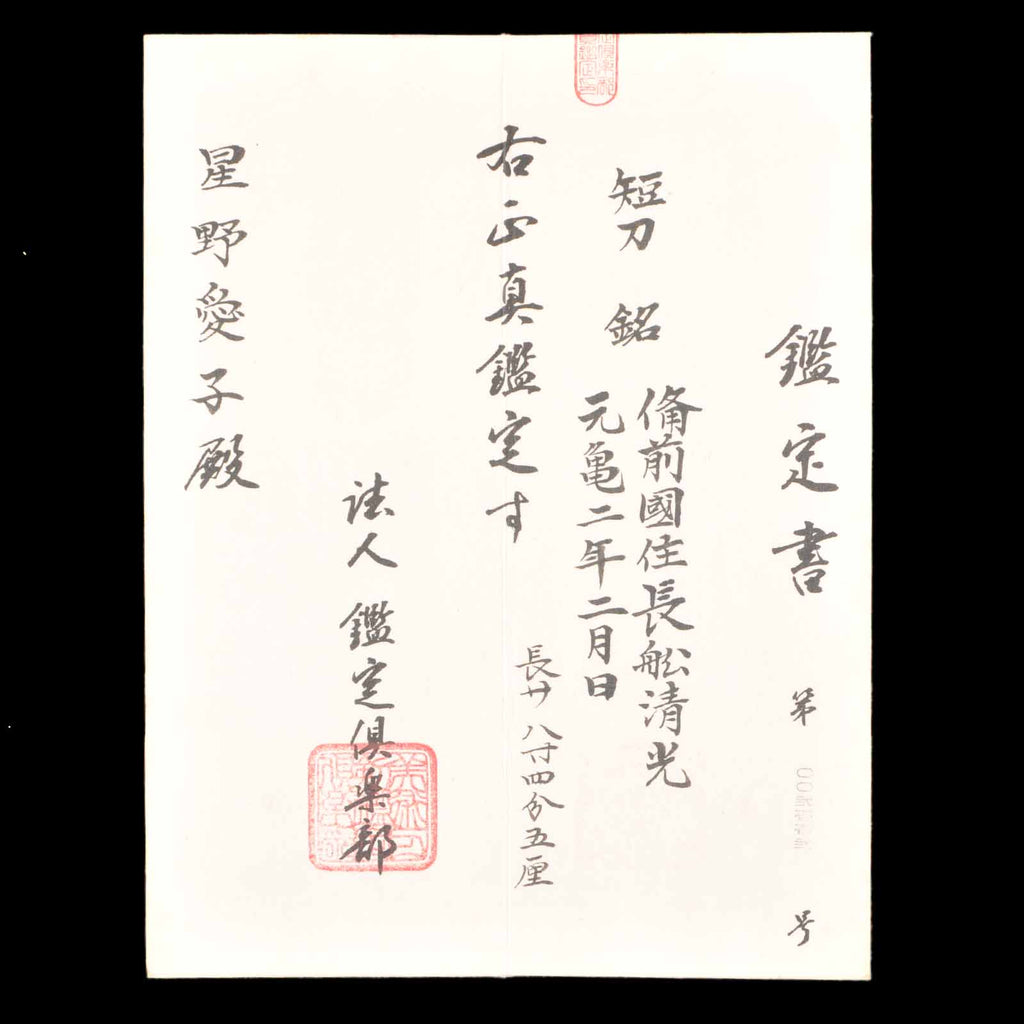 鑑定書 第 号
短刀 銘
備前國住長舩清光
元亀二年二月日
長サ 八寸四分五厘
右正真鑑定す
法人 鑑定倶楽部
星野愛子殿